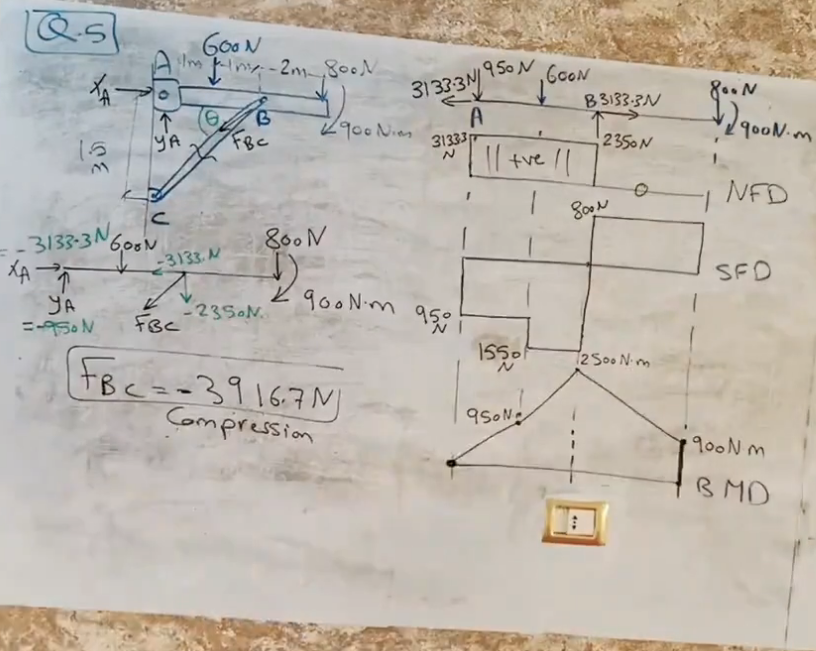 Q.5
600N
A 1m 1m 2m 800N
XA
θ B
900N.m
yA FBC
1.5
m
C
= -3133.3N 600N -3133.N 800N
XA
yA
= -950N
FBC -2350N. 900N.m
FBC = -3916.7N
Compression
3133.3N 950N 600N B 3133.3N 800N
A 900N.m
31333
N
+ve 2350N
0 NFD
800N
SFD
950
N
1550
N
2500N.m
950N.
900Nm
BMD